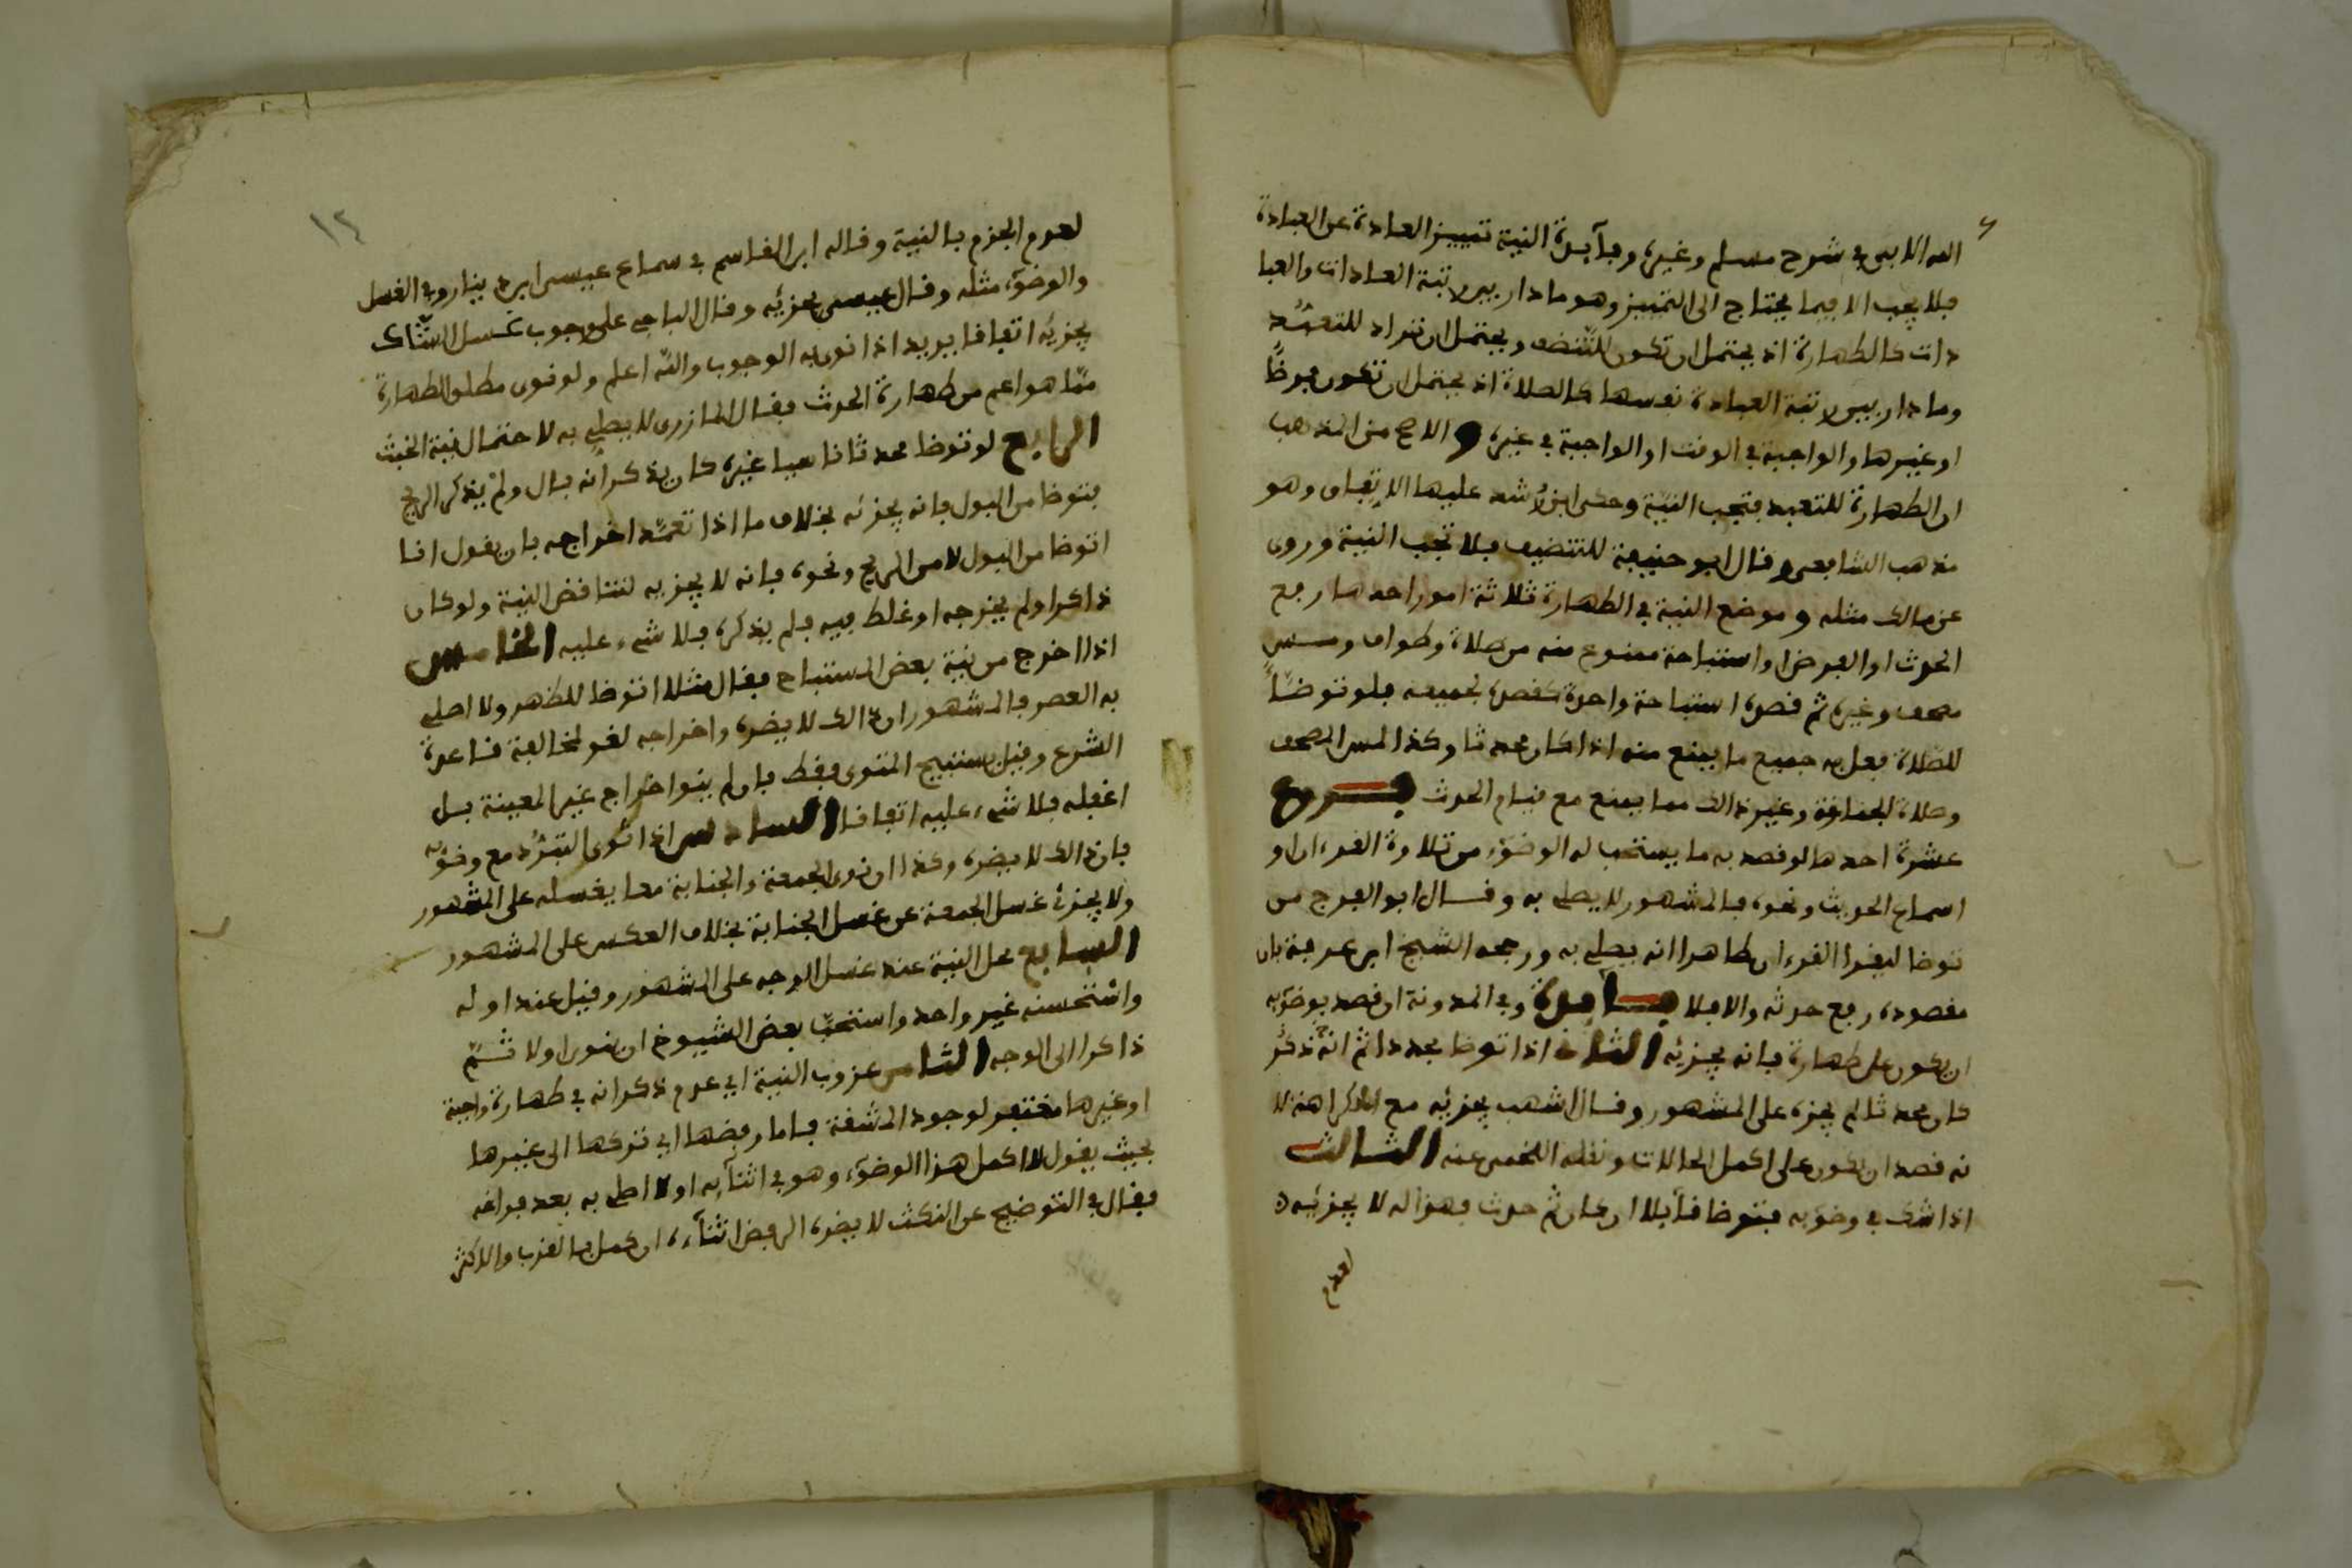 الله الابي في شرح مسلم وغيره وفآيدة النية تمييز العادة عن العبادة
فلا يجب الا فيما يحتاج الى التمييز وهو ما دار بين رتبة العادات والعبا
دات كالطهارة اذ يحتمل ان تكون للتنضف ويحتمل ان تراد للتعبُّد
وما دار بين رتبة العبادة نفسها كالصلاة اذ يحتمل ان تكون فرضًا
او غيرها والواجبة في الوقت او الواجبة في غيره والاصح من المذهب
ان الطهارة للتعبد فتجب النيّة وحكى ابن رُشد عليها الاتفاق وهو
مذهب الشافعي وقال ابو حنيفة للتنضيف فلا تجب النية وروى
عن مالك مثله وموضع النية في الطهارة ثلاثة امور احدها رفع
الحدث او الفرض او استباحة ممنوع منه من صلاة وطواف ومس
مصحف وغيره ثم قصده استباحة واحدة كقصده لجميعه فلو توضّأ
للصّلاة فعل به جميع ما يمنع منه اذا كان محدثا وكذا لمس المصحف
وصلاة الجنازة وغير ذالك مما يمنع مع قيام الحدث فروع
عشرة احدها لو قصد به ما يستحب له الوضوء من تلاوة القرءان او
اسماع الحديث ونحوه فالمشهور لا يصلي به وقال ابو الفرج من
توضا ليقرا القرءان ظاهرا انه يصلي به ورجحه الشيخ ابن عرفة بان
مقصوده رفع حدثه والا فلا فآيدة وفي المدونة ان قصد بوضوءه
ان يكون على طهارة فانه يجزئه الثاني اذا توضا مجددا ثم انّه ذكر
كان محدثا لم يجزه على المشهور وقال اشهب يجزئه مع الكراهة لا
نه قصد ان يكون على اكمل الحالات ونقله اللخمي عنه الثالث
اذا شك في وضوءه فتوضا قآيلا ان كان ثم حدث فهو له لا يجزئه
لعدم
١٢
لعدم الجزم بالنية وقاله ابن القاسم في سماع عيسى ابن دينار وفي الغسل
والوضوء مثله وقال عيسى يجزئه وقال الباجي على وجوب غسل الشّاك
يجزيه اتفاقا يريد اذا نوى به الوجوب والله اعلم ولو نوى مطلق الطهارة
ممّا هو اعم من طهارة الحدث فقال المازري لا يصلي به لاحتمال نية الخبث
الرابع لو توضا محدثا ناسيا غيره كان يذكر انه بال ولمْ يذكر الريح
فتوضا من البول فانه يجزئه بخلاف ما اذا تعمّد اخراجه بان يقول انا
اتوضا من البول لا من الريح ونحوه فانه لا يجزيه لتناقض النية ولو كان
ذاكرا ولم يخرجه او غلط فيه فلم يذكره فلا شيء عليه الخامس
اذا اخرج من نية بعض المستباح فقال مثلا اتوضا للظهر ولا اصلي
به العصر فالمشهور ان ذالك لا يضره واخراجه لغو لمخالفة قاعدة
الشرع وقيل يستبيح المنوى فقط فان لم ينو اخراج غير المعينة بل
اغفله فلا شيء عليه اتفاقا السادس اذا نوى التبرُّد مع وضوءه
فان ذالك لا يضره وكذا ان نوى الجمعة والجنابة معا بغسله على المشهور
ولا يجزئ غسل الجمعة عن غسل الجنابة بخلاف العكس على المشهور
السابع محل النية عند غسل الوجه على المشهور وقيل عند اوله
واستحسنه غير واحد واستحبّ بعض الشيوخ ان ينوى اولا ثمّ
ذاكرا الى الوجه الثامن عزوب النية اي عدم ذكرانه في طهارة واجبة
او غيرها مغتفر لوجود المشقة فاما رفضها اي تركها الى غيرها
بحيث يقول لا اكمل هذا الوضوء وهو في اثنآيه او لا اصلي به بعد فراغه
فقال في التوضيح عن النكت لا يضره الرفض اثنآءه ان كمل بالقرب والاكثر